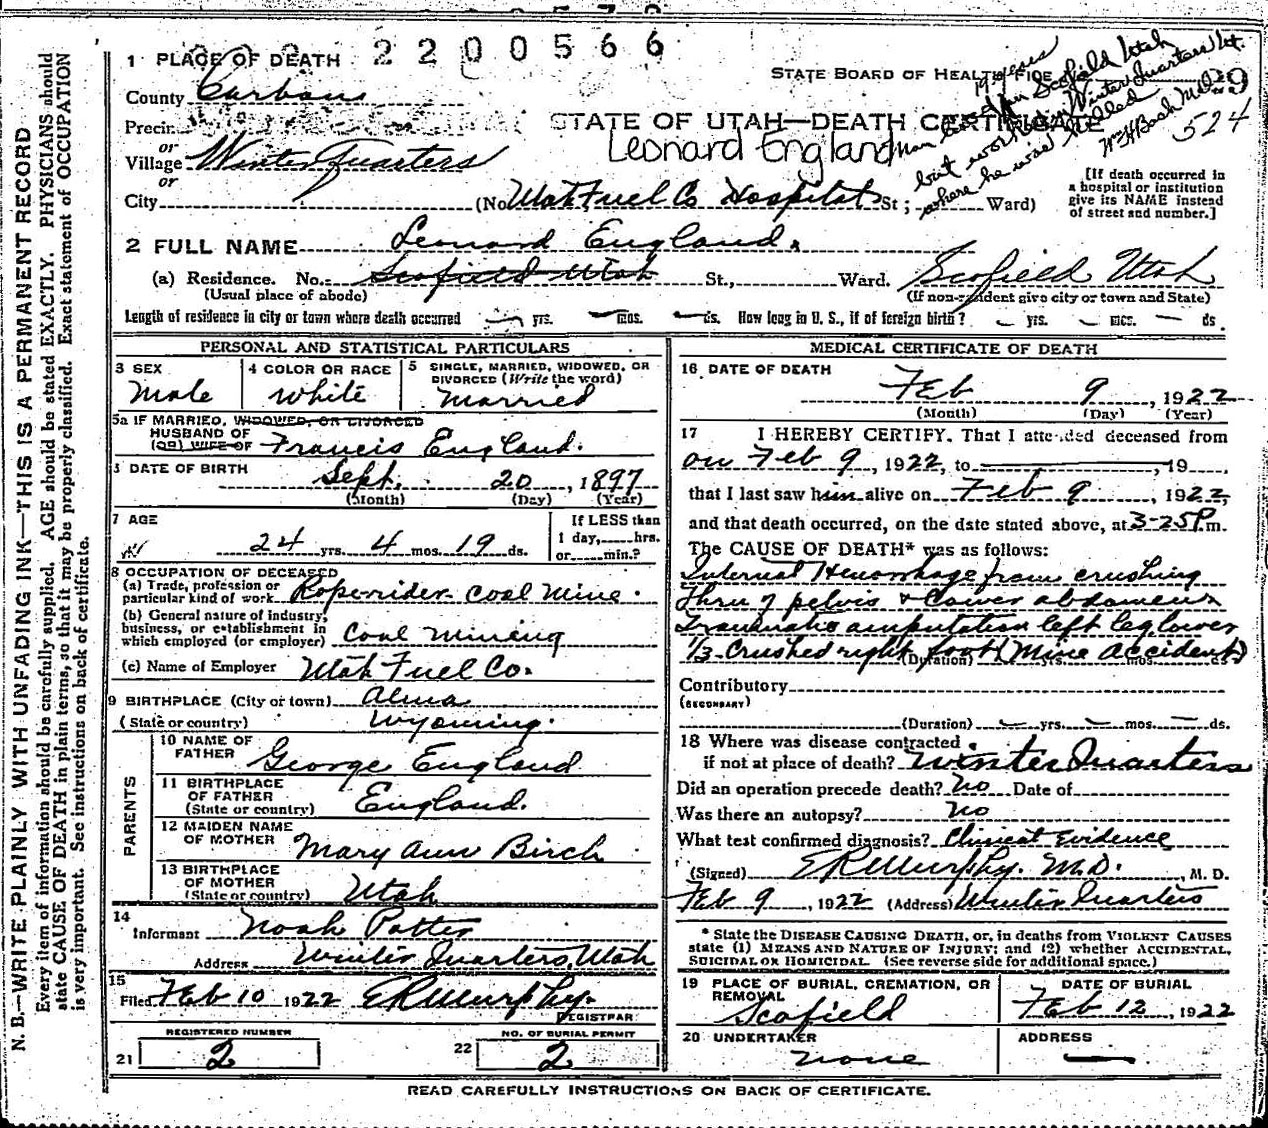 2200566
1 PLACE OF DEATH
STATE BOARD OF HEALTH FILE
County Carbon
Precin
STATE OF UTAH—DEATH CERTIFICATE
524
or
Village Winter Quarters
Leonard England
man lived in Scofield Utah
but worked in Winter Quarters Ut.
where he was killed
or
City (No Utah Fuel Co Hospital St; Ward)
[If death occurred in
a hospital or institution
give its NAME instead
of street and number.]
2 FULL NAME Leonard England.
(a) Residence. No. Scofield Utah St., Ward. Scofield Utah
(Usual place of abode) (If non-resident give city or town and State)
Length of residence in city or town where death occurred yrs. mos. ds. How long in U. S., if of foreign birth? yrs. mcs. ds.
PERSONAL AND STATISTICAL PARTICULARS
3 SEX
Male
4 COLOR OR RACE
White
5 SINGLE, MARRIED, WIDOWED, OR
DIVORCED (Write the word)
Married
5a IF MARRIED, WIDOWED, OR DIVORCED
HUSBAND OF
(OR) WIFE OF Francis England.
DATE OF BIRTH
Sept. 20, 1897
(Month) (Day) (Year)
7 AGE
24 yrs. 4 mos. 19 ds.
If LESS than
1 day, hrs.
or min.?
8 OCCUPATION OF DECEASED
(a) Trade, profession or
particular kind of work Rope-rider coal mine.
(b) General nature of industry,
business, or establishment in
which employed (or employer) Coal mining
(c) Name of Employer Utah Fuel Co.
9 BIRTHPLACE (City or town) Alma
(State or country) Wyoming.
PARENTS
10 NAME OF
FATHER George England
11 BIRTHPLACE
OF FATHER
(State or country) England.
12 MAIDEN NAME
OF MOTHER Mary Ann Birch
13 BIRTHPLACE
OF MOTHER
(State or country) Utah
14
Informant Noah Potter
Address Winter Quarters, Utah
15
Filed Feb 10 1922 ERMurphy.
REGISTRAR
REGISTERED NUMBER
21 2
NO. OF BURIAL PERMIT
22 2
MEDICAL CERTIFICATE OF DEATH
16 DATE OF DEATH
Feb 9, 1922
(Month) (Day) (Year)
17 I HEREBY CERTIFY, That I attended deceased from
on Feb 9, 1922, to , 19
that I last saw him alive on Feb 9, 1922,
and that death occurred, on the date stated above, at 3-25 P.m.
The CAUSE OF DEATH* was as follows:
Internal Hemorrhage from crushing
thru of pelvis & lower abdomen
Traumatic amputation left leg lower
1/3. Crushed right foot (Mine Accident)
(Duration) yrs. mos. ds
Contributory
(SECONDARY)
(Duration) yrs. mos. ds.
18 Where was disease contracted
if not at place of death? Winter Quarters
Did an operation precede death? No Date of
Was there an autopsy? No
What test confirmed diagnosis? Clinical Evidence
(Signed) ERMurphy. M.D., M. D.
Feb 9, 1922 (Address) Winter Quarters
* State the DISEASE CAUSING DEATH, or, in deaths from VIOLENT CAUSES
state (1) MEANS AND NATURE OF INJURY; and (2) whether ACCIDENTAL,
SUICIDAL OR HOMICIDAL. (See reverse side for additional space.)
19 PLACE OF BURIAL, CREMATION, OR
REMOVAL
Scofield
DATE OF BURIAL
Feb 12, 1922
20 UNDERTAKER
none
ADDRESS
READ CAREFULLY INSTRUCTIONS ON BACK OF CERTIFICATE.
N. B.—WRITE PLAINLY WITH UNFADING INK—THIS IS A PERMANENT RECORD
Every item of information should be carefully supplied. AGE should be stated EXACTLY. PHYSICIANS should
state CAUSE OF DEATH in plain terms, so that it may be properly classified. Exact statement of OCCUPATION
is very important. See instructions on back of certificate.